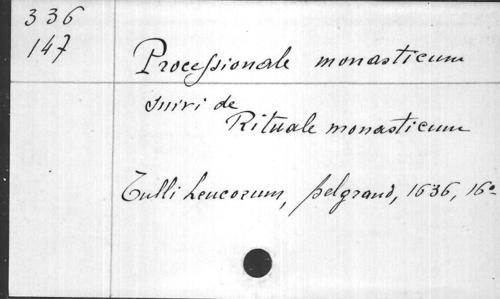 336
147
Processionale monasticum
suivi de
Rituale monasticum
Tulli Leucorum, Belgrand, 1636, 16º